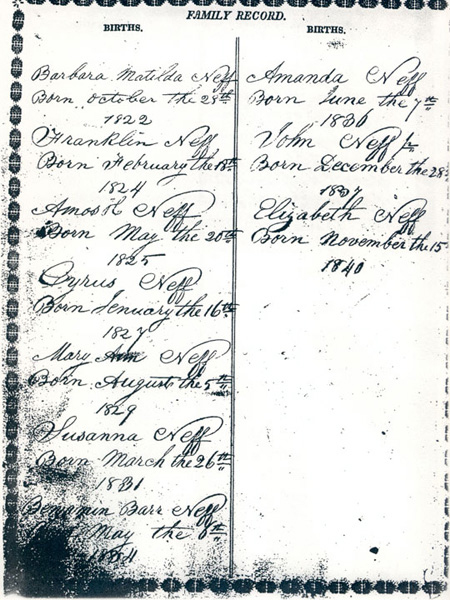 FAMILY RECORD.
BIRTHS.
Barbara Matilda Neff
Born October the 28th
1822
Franklin Neff
Born February the 18th
1824
Amos H Neff
Born May the 20th
1825
Cyrus Neff
Born Jenuary the 16th
1827
Mary Ann Neff
Born August the 5th
1829
Susanna Neff
Born March the 26th
1831
Benjamin Barr Neff
May the 6th
1834
BIRTHS.
Amanda Neff
Born June the 7th
1836
John Neff Jr
Born December the 28
1837
Elizabeth Neff
Born November the 15
1840